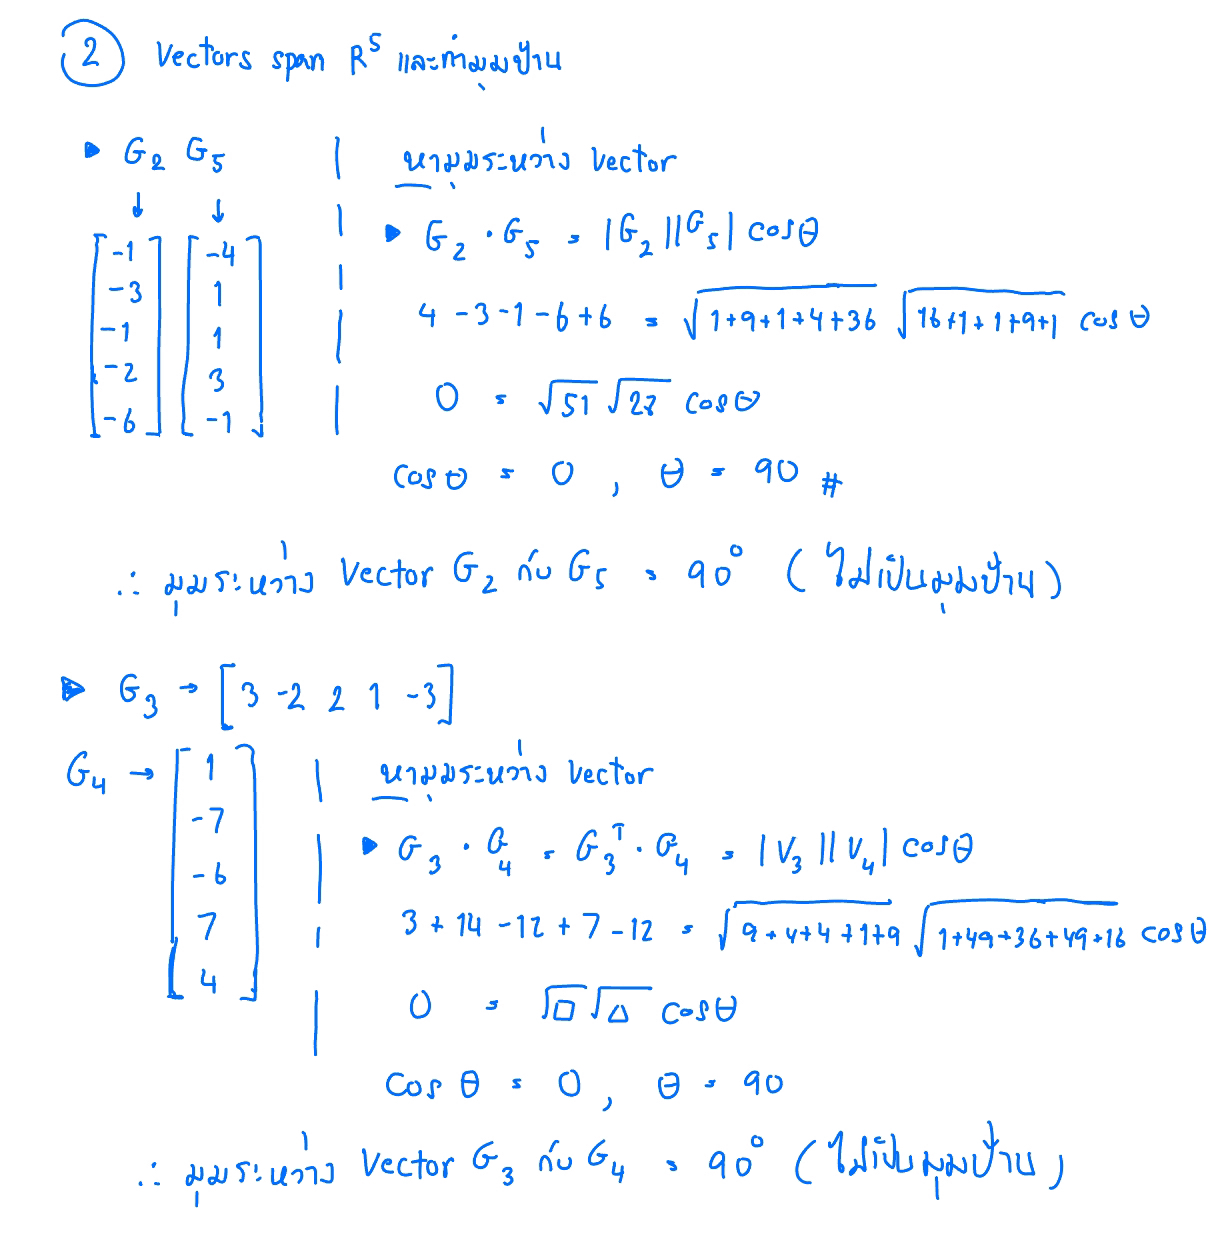 ② Vectors span R⁵ และทำมุมป้าน
▸ G₂ G₅
↓ ↓
[-1 -3 -1 -2 -6] [-4 1 1 3 -1]
หามุมระหว่าง Vector
▸ G₂ · G₅ = |G₂||G₅| cosθ
4 -3-1-6+6 = √(1+9+1+4+36) √(16+1+1+9+1) cosθ
0 = √51 √28 cosθ
cosθ = 0 , θ = 90 #
∴ มุมระหว่าง Vector G₂ กับ G₅ = 90° (ไม่เป็นมุมป้าน)
▸ G₃ → [3 -2 2 1 -3]
G₄ → [1 -7 -6 7 4]
หามุมระหว่าง Vector
▸ G₃ · G₄ = G₃ᵀ · G₄ = |V₃||V₄| cosθ
3 + 14 -12 + 7 -12 = √(9+4+4+1+9) √(1+49+36+49+16) cosθ
0 = √□ √△ cosθ
cosθ = 0 , θ = 90
∴ มุมระหว่าง Vector G₃ กับ G₄ = 90° (ไม่เป็นมุมป้าน)